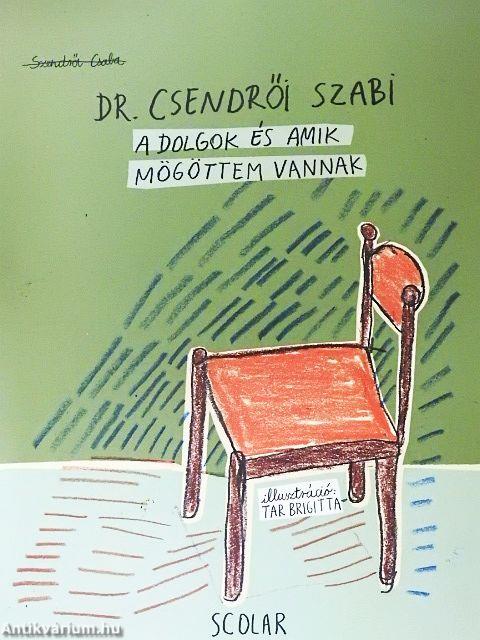 Szendrői Csaba
DR. CSENDRŐI SZABI
A DOLGOK ÉS AMIK
MÖGÖTTEM VANNAK
illusztráció:
TAR BRIGITTA
SCOLAR
Antikvárium.hu